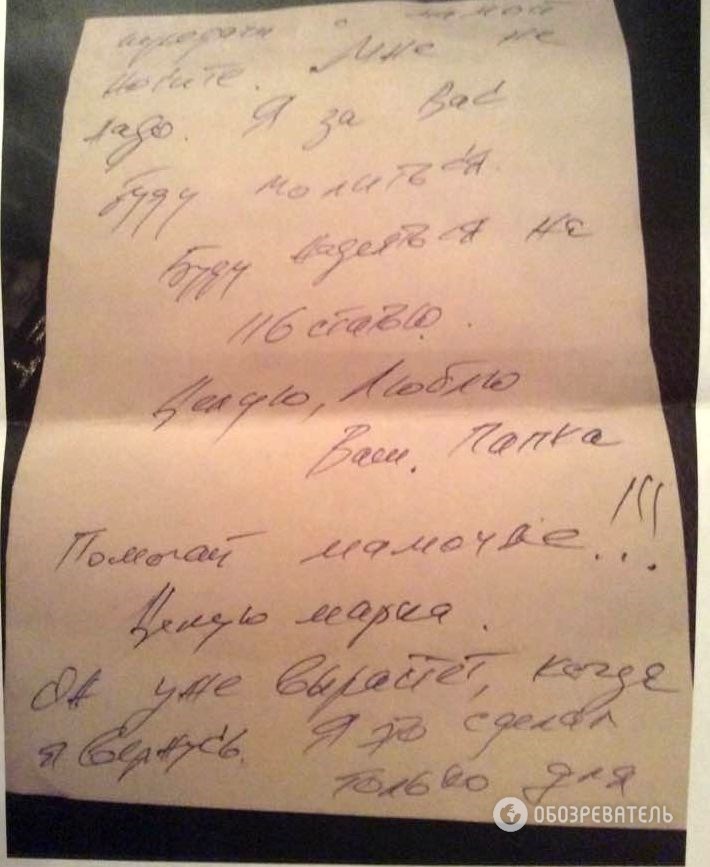 передачи зимой
носите. Мне не
надо. Я за Вас
Буду молиться.
Буду надеяться на
116 статью.
Целую, Люблю
Ваш. Папка
Помогай мамочке!!!
Целую марка.
Он уже вырастет, когда
я вернусь. Я это сделал
только для
ОБОЗРЕВАТЕЛЬ